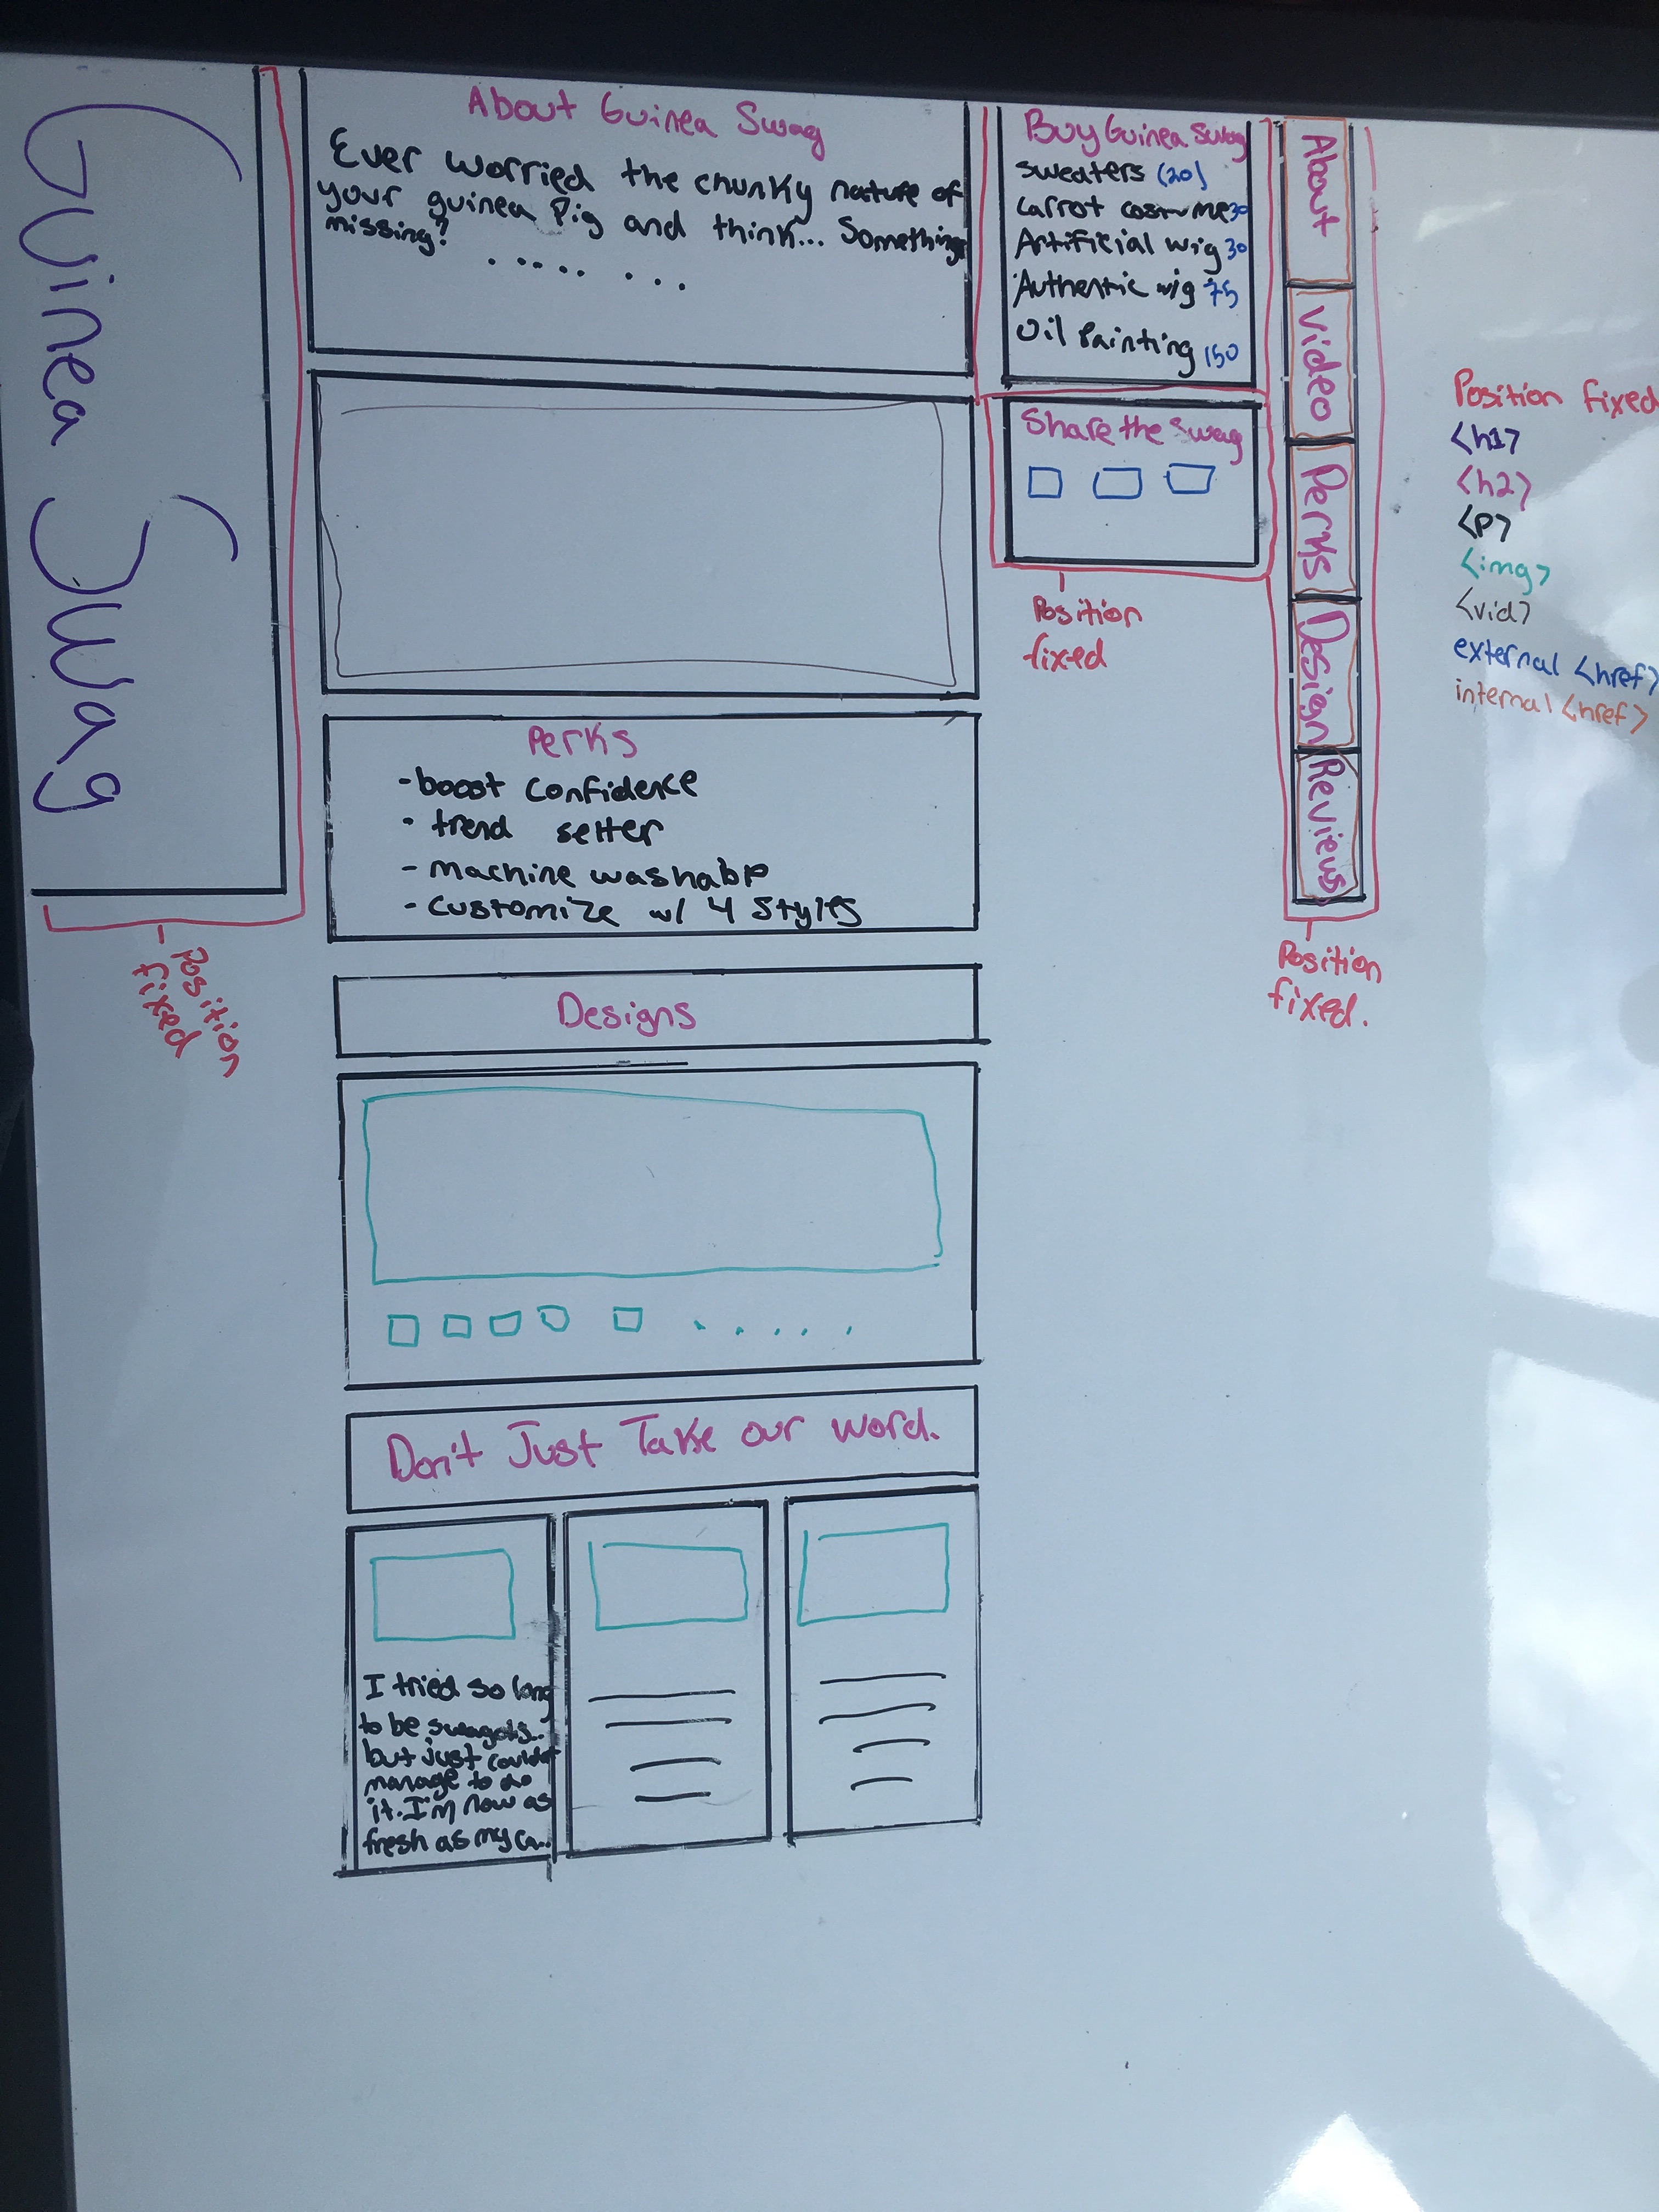 Guinea Swag
Position
fixed
About Guinea Swag
Ever worried the chunky nature of
your guinea pig and think... Something
missing?
..... ...
Perks
-boost confidence
- trend setter
- machine washable
- customize w/ 4 styles
Designs
.....
Don't Just Take our word.
I tried so long
to be
but just couldn't
manage to do
it. I'm now as
fresh as my ca..
Buy Guinea Swag
Sweaters (20)
Carrot costume 30
Artificial wig 30
Authentic wig 75
Oil Painting 150
Share the Swag
Position
fixed
About
Video
Perks
Design
Reviews
Position
fixed.
Position fixed
<h1>
<h2>
<p>
<img>
<vid>
external <href>
internal <href>